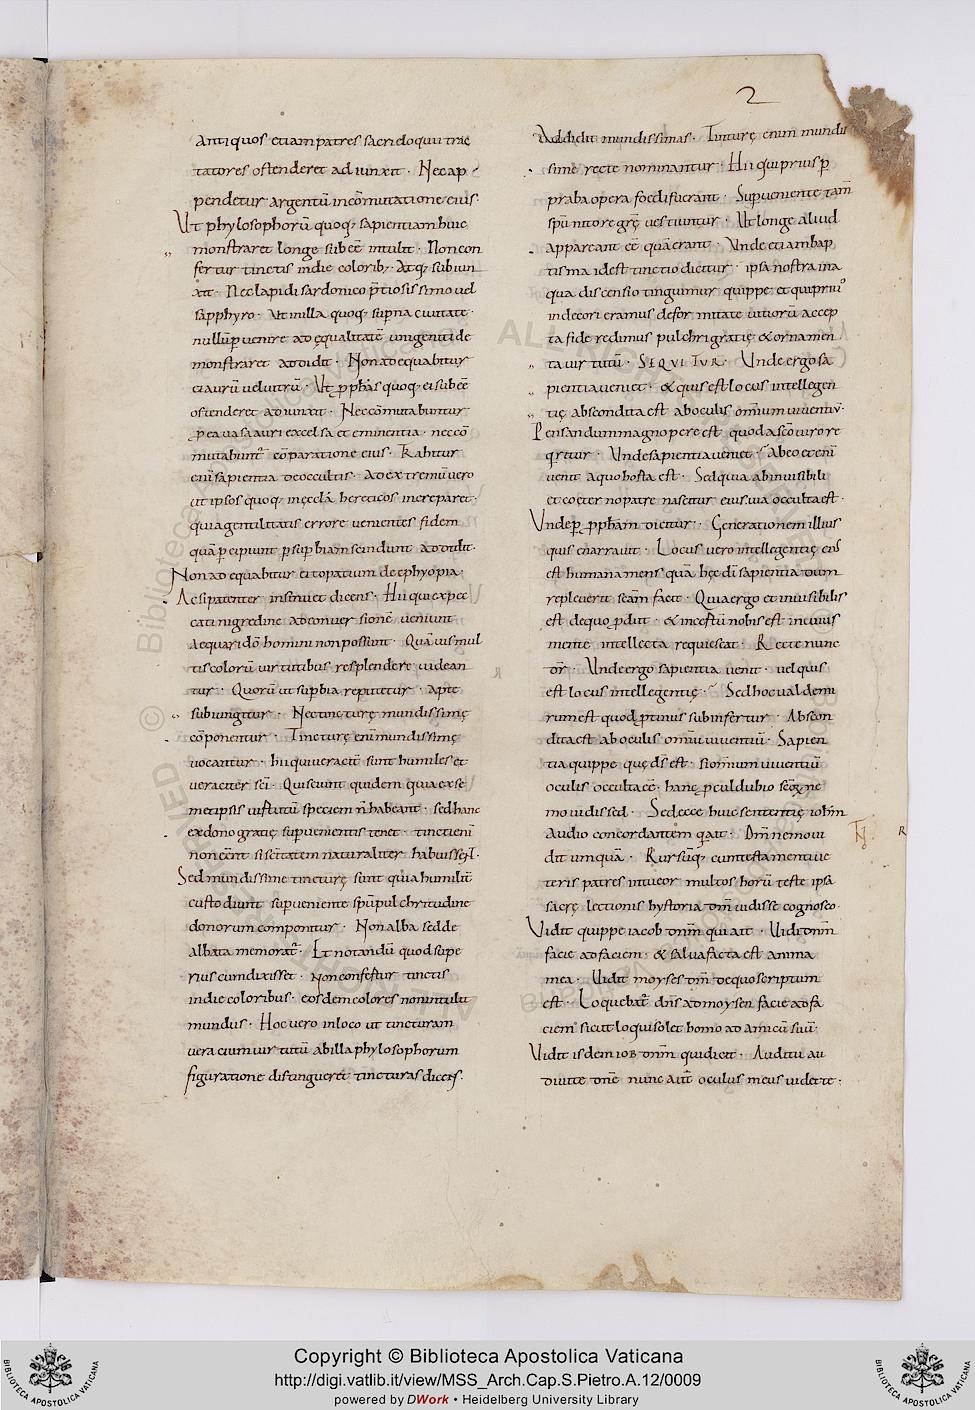 2
Antiquos etiam patres sacri eloquii trac
tatores ostenderet adiunxit · Nec ap
pendetur argentū incōmutatione eius·
Ut phylosophorū quoq; sapientiam huic
monstraret longe subeē intulit · Non con
fertur tinctis indie colorib; · Atq; subiun
xit · Nec lapidi sardonico p̄tiosissimo vel
sapphyro · Ut in illa quoq; sup̄na ciuitate·
nullū p̄uenire ad ęqualitatē unigeniti de
monstraret addidit · Non adequabitur
ei aurū vel vitrū · Ut ꝓph̄as quoq; ei subeē
ostenderet adiunxit · Nec cōmutabuntur
ꝓ ea vasa auri excelsa et eminentia · nec cō
mutabunt͛ cōparatione eius · Trahitur
enī sapientia de occultis · Ad extremū vero
ut ipsos quoq; in ęccl̄a hereticos increparet·
qui a gentilitatis errore venientes fidem
quā p̄cipiunt p̄ sup̄biam scindunt addidit·
Non adequabitur ei topatium de ethyopia·
Ac si patenter instruct dicens · Hii qui ex pec
cati nigredine ad conuersionē veniunt
Aequari dō homini non possunt · Quāuis mul
tis colorū virtutibus resplendere videan
tur · Quorū ut superbia reputetur · Apte
subiungitur · Nec tincturę mundissimę
cōponentur · Tincturę enī mundissimę
vocantur · hii qui veraciter sunt humiles et
veraciter sc̄i · Qui sciunt quidem quia ex se
metipsis virtutū speciem n̄ habeant · sed hanc
ex dono gratię superuenientis tenet · tincti enī
non eēnt si sc̄itatem naturaliter habuissent·
Sed mundissime tincturę sunt quia humilit̄
custodiunt superueniente sp̄u pulchritudine
donorum componitur · Non alba sed de
albata memorat͛ · Et notandū quod supe
rius cum dixisset · Non confertur tinctis
indie coloribus · eosdem colores non intulit
mundus · Hoc vero in loco ut tincturam
vera cium virtutū ab illa phylosophorum
figuratione distingueret tincturas dicens·
Addidit mundissimas · Tincturę enim mundis
sime recte nominantur · Hii qui prius p̄
praba opera foedi fuerant · Superueniente tam̄
sp̄u nitore grę̄ vestiuntur · Ut longe aliud
appareant eē quā erant · Unde etiam bap
tisma id est tinctio dicitur · ipsa nostra in a
qua discensio tinguimur quippe et qui prius
indecori eramus deformitate vitiorū accep
ta fide redimus pulchri gratię & ornamen
ta virtutū · SEQUITUR · Unde ergo sa
pientia veniet · & quis est locus intellegen
tię abscondita est ab oculis omium viuentiū·
Pensandum magnopere est quod a scō viro re
quiritur · Unde sapientia veniet · Ab eo et enī
venit a quo hosta est · Sed quia ab inuisibili
et coęterno patre nascitur eius via occulta est ·
Unde p̄ ꝓph̄am dicitur · Generationem illius
quis enarrauit · Locus vero intellegentię eius
est humana mens quā hęc dī sapientia dum
repleuerit sc̄am facit · Quia ergo et inuisibilis
est de quo ꝓdiit · & incertū nobis est in cuius
mente intellecta requiescat · Recte nunc
dr̄ · Unde ergo sapientia venit · vel quis
est locus intellegentię · Sed hoc valde mi
rum est quod ꝓtinus subinfertur · Abscon
dita est ab oculis omiū viuentiū · Sapien
tia quippe quę dS̄ est · si omium viuentiū
oculis occulta eē · hanc ꝓculdubio sc̄ox̄ ne
mo vidissed · Sed ecce huic sententię ioh̄m
audio concordantem q̄ ait · Dm̄ nemo vi
dit umquā · Rursūq; cum testamenti ve
teris patres intueor multos horū teste ipsa
sacrę lectionis hystoria dm̄ vidisse cognosco·
Vidit quippe iacob dnm̄ qui ait · Vidi dnm̄
facie ad faciem · & salua facta est anima
mea · Vidit moyses dm̄ de quo scriptum
est · Loquebat͛ dn̄s ad moysen facie ad fa
ciem sicut loqui solet homo ad amicū suū·
Vidit isdem iob dnm̄ qui dicit · Auditu au
diui te dn̄e nunc aut̄ oculus meus videt te·
Copyright © Biblioteca Apostolica Vaticana
http://digi.vatlib.it/view/MSS_Arch.Cap.S.Pietro.A.12/0009
powered by DWork • Heidelberg University Library
BIBLIOTECA APOSTOLICA VATICANA
BIBLIOTECA APOSTOLICA VATICANA